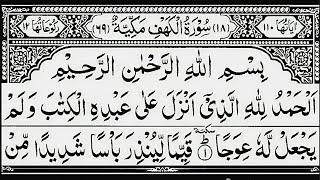 اٰیَاتُهَا ١١٠ (١٨) سُوْرَةُ الْكَهْفِ مَكِّیَّةٌ (٦٩) رُكُوْعَاتُهَا ١٢
بِسْمِ اللّٰهِ الرَّحْمٰنِ الرَّحِیْمِ
اَلْحَمْدُ لِلّٰهِ الَّذِیْۤ اَنْزَلَ عَلٰی عَبْدِهِ الْكِتٰبَ وَلَمْ
یَجْعَلْ لَّهٗ عِوَجًا ؕ سكتة ① قَیِّمًا لِّیُنْذِرَ بَاْسًا شَدِیْدًا مِّنْ